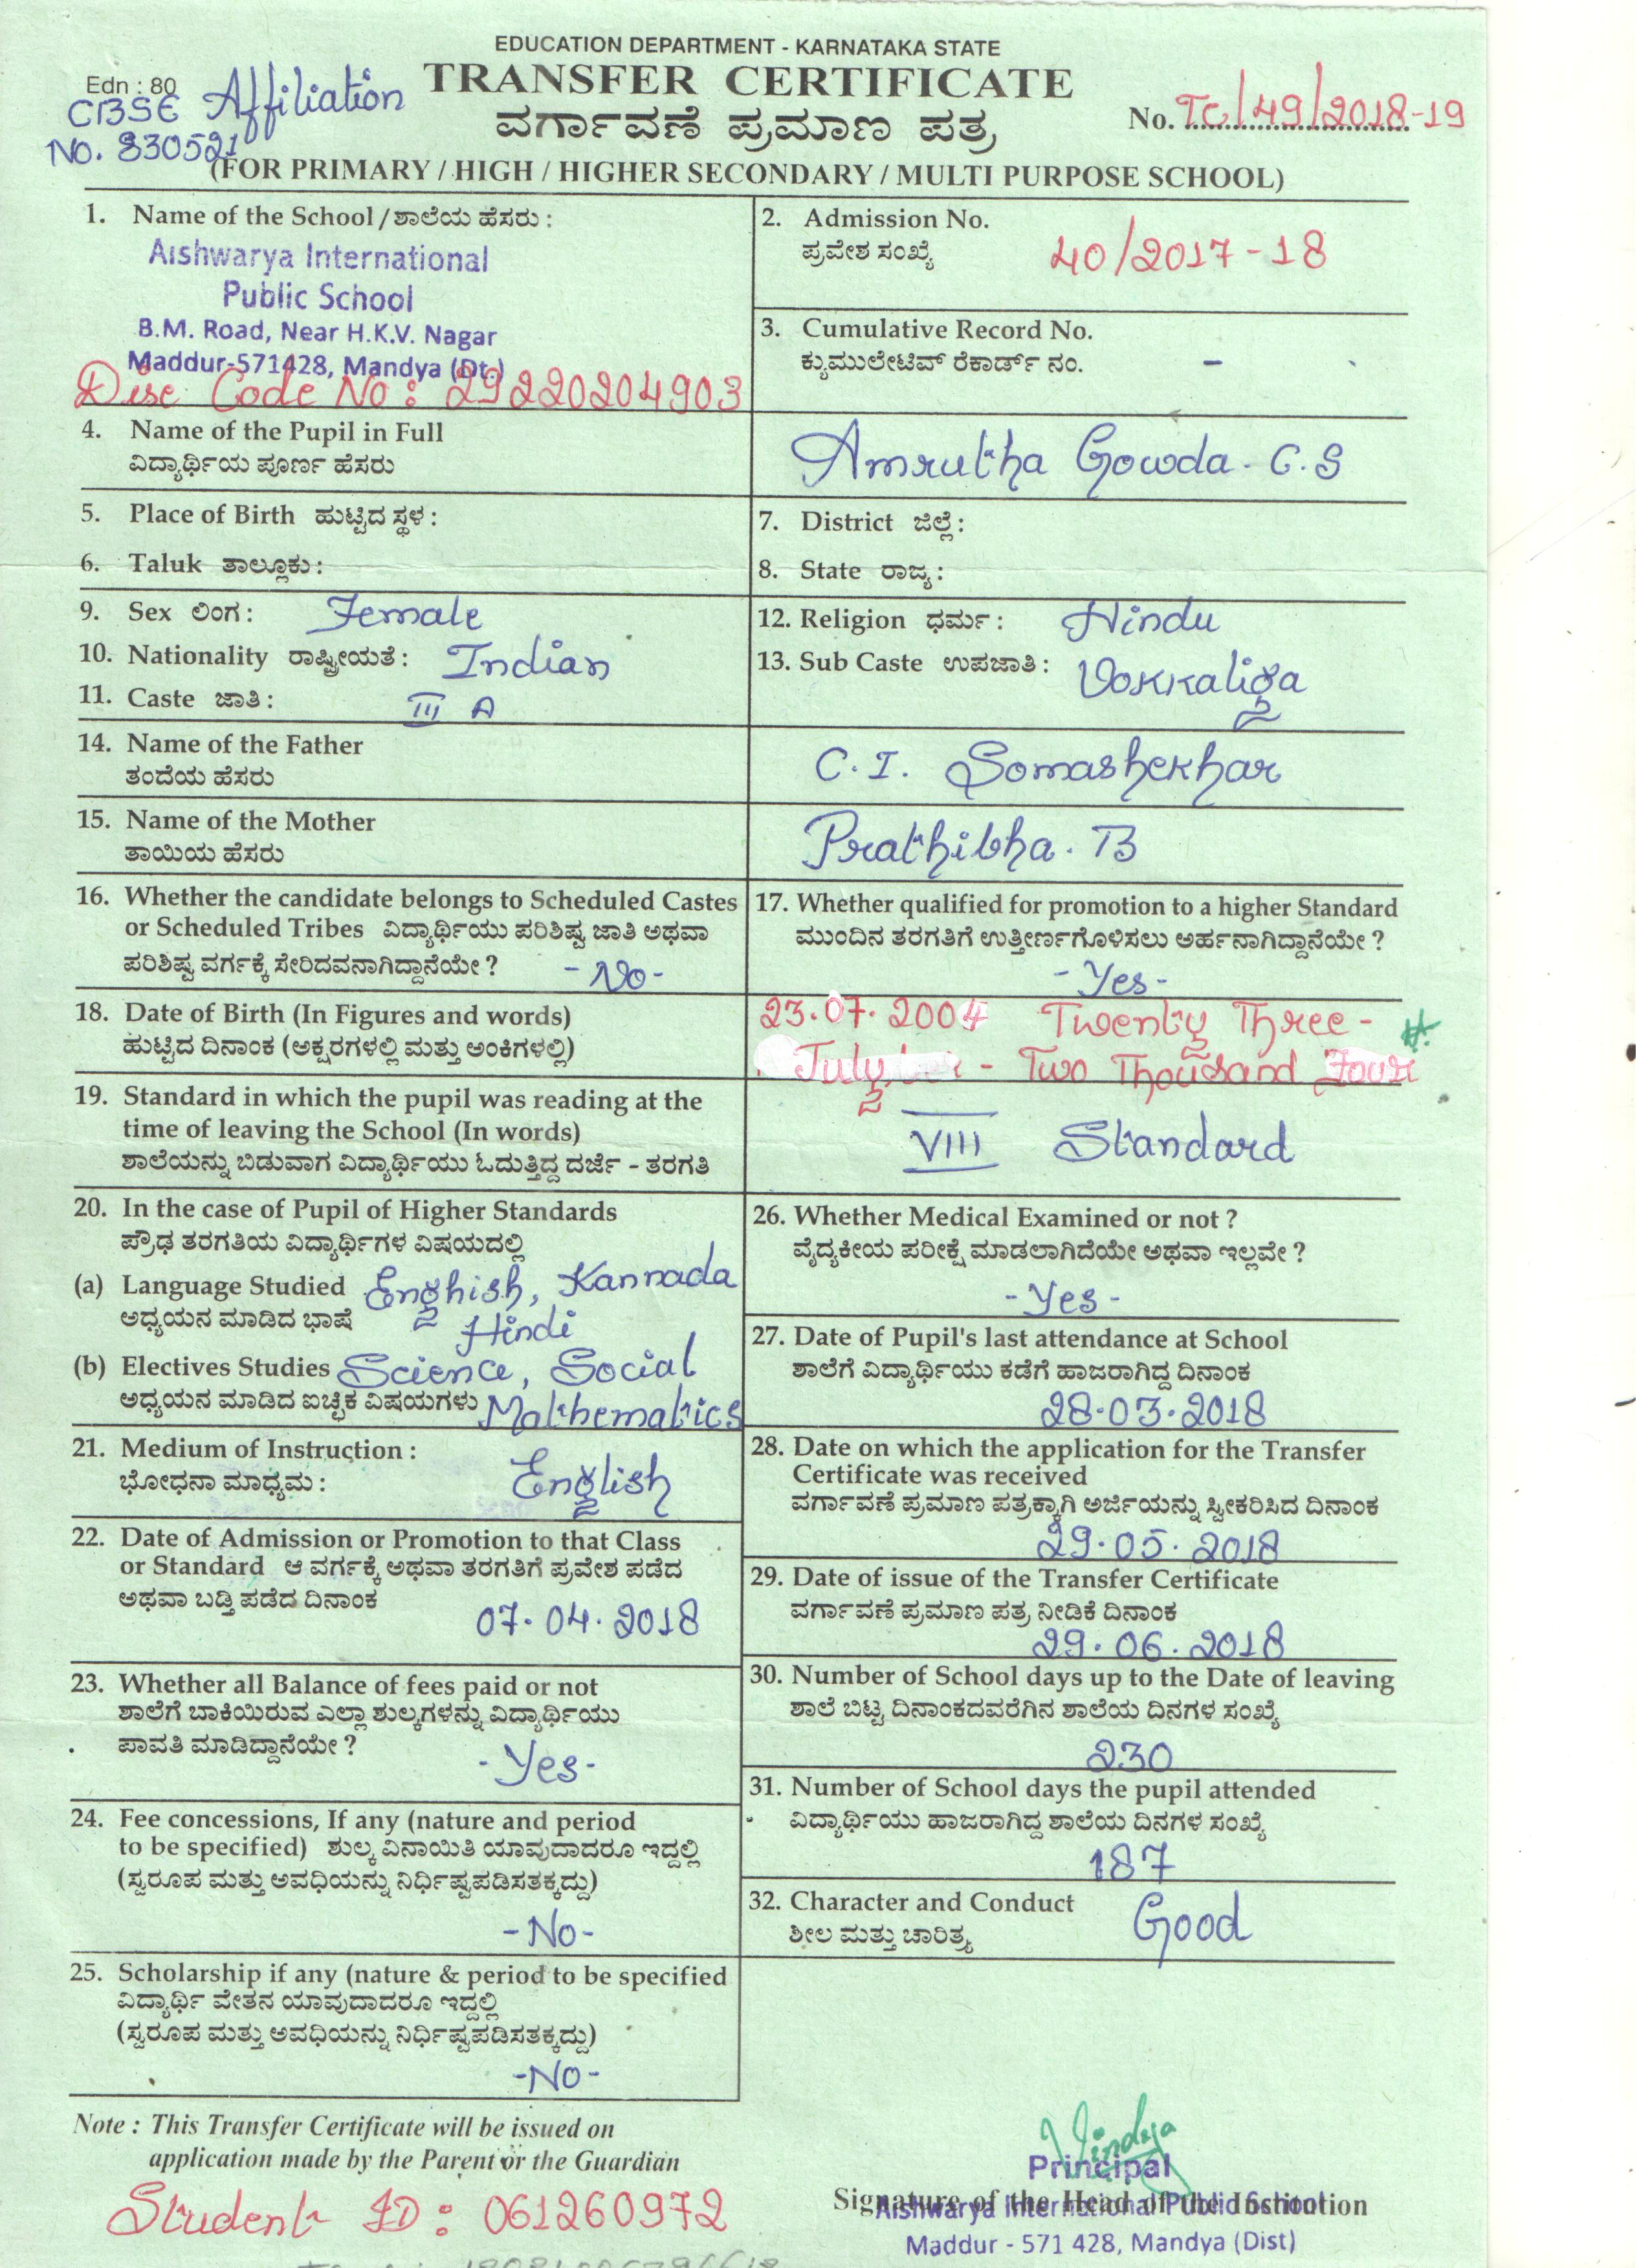 EDUCATION DEPARTMENT - KARNATAKA STATE
Edn : 80
TRANSFER CERTIFICATE
CBSE Affiliation
No. 830521
ವರ್ಗಾವಣೆ ಪ್ರಮಾಣ ಪತ್ರ
No. TC/49/2018-19
(FOR PRIMARY / HIGH / HIGHER SECONDARY / MULTI PURPOSE SCHOOL)
1. Name of the School / ಶಾಲೆಯ ಹೆಸರು :
Aishwarya International
Public School
B.M. Road, Near H.K.V. Nagar
Maddur-571428, Mandya (Dt.)
Dise Code No : 29220204903
2. Admission No.
ಪ್ರವೇಶ ಸಂಖ್ಯೆ 40/2017-18
3. Cumulative Record No.
ಕ್ಯುಮುಲೇಟಿವ್ ರೆಕಾರ್ಡ್ ನಂ. -
4. Name of the Pupil in Full
ವಿದ್ಯಾರ್ಥಿಯ ಪೂರ್ಣ ಹೆಸರು
Amrutha Gowda. C.S
5. Place of Birth ಹುಟ್ಟಿದ ಸ್ಥಳ :
7. District ಜಿಲ್ಲೆ :
6. Taluk ತಾಲ್ಲೂಕು :
8. State ರಾಜ್ಯ :
9. Sex ಲಿಂಗ : Female
12. Religion ಧರ್ಮ : Hindu
10. Nationality ರಾಷ್ಟ್ರೀಯತೆ : Indian
13. Sub Caste ಉಪಜಾತಿ : Vokkaliga
11. Caste ಜಾತಿ : III A
14. Name of the Father
ತಂದೆಯ ಹೆಸರು
C.I. Somashekhar
15. Name of the Mother
ತಾಯಿಯ ಹೆಸರು
Prathibha. B
16. Whether the candidate belongs to Scheduled Castes
or Scheduled Tribes ವಿದ್ಯಾರ್ಥಿಯು ಪರಿಶಿಷ್ಟ ಜಾತಿ ಅಥವಾ
ಪರಿಶಿಷ್ಟ ವರ್ಗಕ್ಕೆ ಸೇರಿದವನಾಗಿದ್ದಾನೆಯೇ ? - No -
17. Whether qualified for promotion to a higher Standard
ಮುಂದಿನ ತರಗತಿಗೆ ಉತ್ತೀರ್ಣಗೊಳಿಸಲು ಅರ್ಹನಾಗಿದ್ದಾನೆಯೇ ?
- Yes -
18. Date of Birth (In Figures and words)
ಹುಟ್ಟಿದ ದಿನಾಂಕ (ಅಕ್ಷರಗಳಲ್ಲಿ ಮತ್ತು ಅಂಕಿಗಳಲ್ಲಿ)
23.07.2004 Twenty Three -
July - Two Thousand Four
19. Standard in which the pupil was reading at the
time of leaving the School (In words)
ಶಾಲೆಯನ್ನು ಬಿಡುವಾಗ ವಿದ್ಯಾರ್ಥಿಯು ಓದುತ್ತಿದ್ದ ದರ್ಜೆ - ತರಗತಿ
VIII Standard
20. In the case of Pupil of Higher Standards
ಪ್ರೌಢ ತರಗತಿಯ ವಿದ್ಯಾರ್ಥಿಗಳ ವಿಷಯದಲ್ಲಿ
(a) Language Studied Enghish, Kannada
ಅಧ್ಯಯನ ಮಾಡಿದ ಭಾಷೆ Hindi
(b) Electives Studies Science, Social
ಅಧ್ಯಯನ ಮಾಡಿದ ಐಚ್ಛಿಕ ವಿಷಯಗಳು Mathematics
21. Medium of Instruction :
ಭೋಧನಾ ಮಾಧ್ಯಮ : English
22. Date of Admission or Promotion to that Class
or Standard ಆ ವರ್ಗಕ್ಕೆ ಅಥವಾ ತರಗತಿಗೆ ಪ್ರವೇಶ ಪಡೆದ
ಅಥವಾ ಬಡ್ತಿ ಪಡೆದ ದಿನಾಂಕ
07.04.2018
23. Whether all Balance of fees paid or not
ಶಾಲೆಗೆ ಬಾಕಿಯಿರುವ ಎಲ್ಲಾ ಶುಲ್ಕಗಳನ್ನು ವಿದ್ಯಾರ್ಥಿಯು
ಪಾವತಿ ಮಾಡಿದ್ದಾನೆಯೇ ?
- Yes -
24. Fee concessions, If any (nature and period
to be specified) ಶುಲ್ಕ ವಿನಾಯಿತಿ ಯಾವುದಾದರೂ ಇದ್ದಲ್ಲಿ
(ಸ್ವರೂಪ ಮತ್ತು ಅವಧಿಯನ್ನು ನಿರ್ಧಿಷ್ಟಪಡಿಸತಕ್ಕದ್ದು)
- No -
25. Scholarship if any (nature & period to be specified
ವಿದ್ಯಾರ್ಥಿ ವೇತನ ಯಾವುದಾದರೂ ಇದ್ದಲ್ಲಿ
(ಸ್ವರೂಪ ಮತ್ತು ಅವಧಿಯನ್ನು ನಿರ್ಧಿಷ್ಟಪಡಿಸತಕ್ಕದ್ದು)
- No -
26. Whether Medical Examined or not ?
ವೈದ್ಯಕೀಯ ಪರೀಕ್ಷೆ ಮಾಡಲಾಗಿದೆಯೇ ಅಥವಾ ಇಲ್ಲವೇ ?
- Yes -
27. Date of Pupil's last attendance at School
ಶಾಲೆಗೆ ವಿದ್ಯಾರ್ಥಿಯು ಕಡೆಗೆ ಹಾಜರಾಗಿದ್ದ ದಿನಾಂಕ
28.03.2018
28. Date on which the application for the Transfer
Certificate was received
ವರ್ಗಾವಣೆ ಪ್ರಮಾಣ ಪತ್ರಕ್ಕಾಗಿ ಅರ್ಜಿಯನ್ನು ಸ್ವೀಕರಿಸಿದ ದಿನಾಂಕ
29.05.2018
29. Date of issue of the Transfer Certificate
ವರ್ಗಾವಣೆ ಪ್ರಮಾಣ ಪತ್ರ ನೀಡಿಕೆ ದಿನಾಂಕ
29.06.2018
30. Number of School days up to the Date of leaving
ಶಾಲೆ ಬಿಟ್ಟ ದಿನಾಂಕದವರೆಗಿನ ಶಾಲೆಯ ದಿನಗಳ ಸಂಖ್ಯೆ
230
31. Number of School days the pupil attended
ವಿದ್ಯಾರ್ಥಿಯು ಹಾಜರಾಗಿದ್ದ ಶಾಲೆಯ ದಿನಗಳ ಸಂಖ್ಯೆ
187
32. Character and Conduct
ಶೀಲ ಮತ್ತು ಚಾರಿತ್ರ್ಯ Good
Note : This Transfer Certificate will be issued on
application made by the Parent or the Guardian
Student ID : 061260972
Principal
Signature of the Head of the Institution
Aishwarya International Public School
Maddur - 571 428, Mandya (Dist)